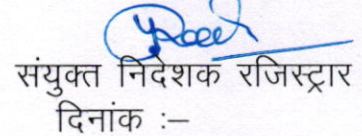 संयुक्त निदेशक रजिस्ट्रार
दिनांक :–